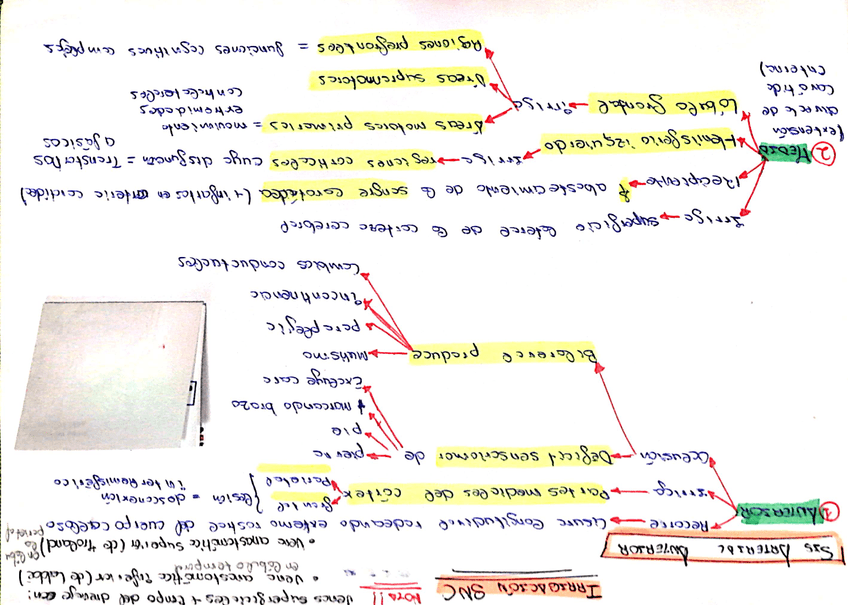 IRRIGACIÓN SNC
NOTA!! Venas superficiales + tiempo del drenaje son:
• Vena anastomótica inferior (de Labbé)
en lóbulo temporal
• Vena anastomótica superior (de Troland)
en lóbulo parietal
SIS ARTERIAL ANTERIOR
① ANTERIOR
Recorre cisura longitudinal rodeando extremo rostral del cuerpo calloso
Irriga Partes mediales del córtex
Frontal
Parietal
lesión = desconexión
interhemisférica
oclusión Déficit sensoriomotor de
pierna
pie
+ marcando brazo
Excluye cara
Bilateral produce
Mutismo
paraplejia
incontinencia
Cambios conductuales
② MEDIA
(extensión
directa de
carótida
interna)
Irriga superficie lateral de la corteza cerebral
Recipiente abastecimiento de la sangre carotídea (+ infartos en arteria carótida)
Hemisferio izquierdo Irriga regiones corticales cuya disfunción = Trastornos
afásicos
Lóbulo frontal irriga
Áreas motoras primarias = movimiento
extremidades
contralaterales
Áreas suplementarias
Regiones prefrontales = funciones cognitivas complejas